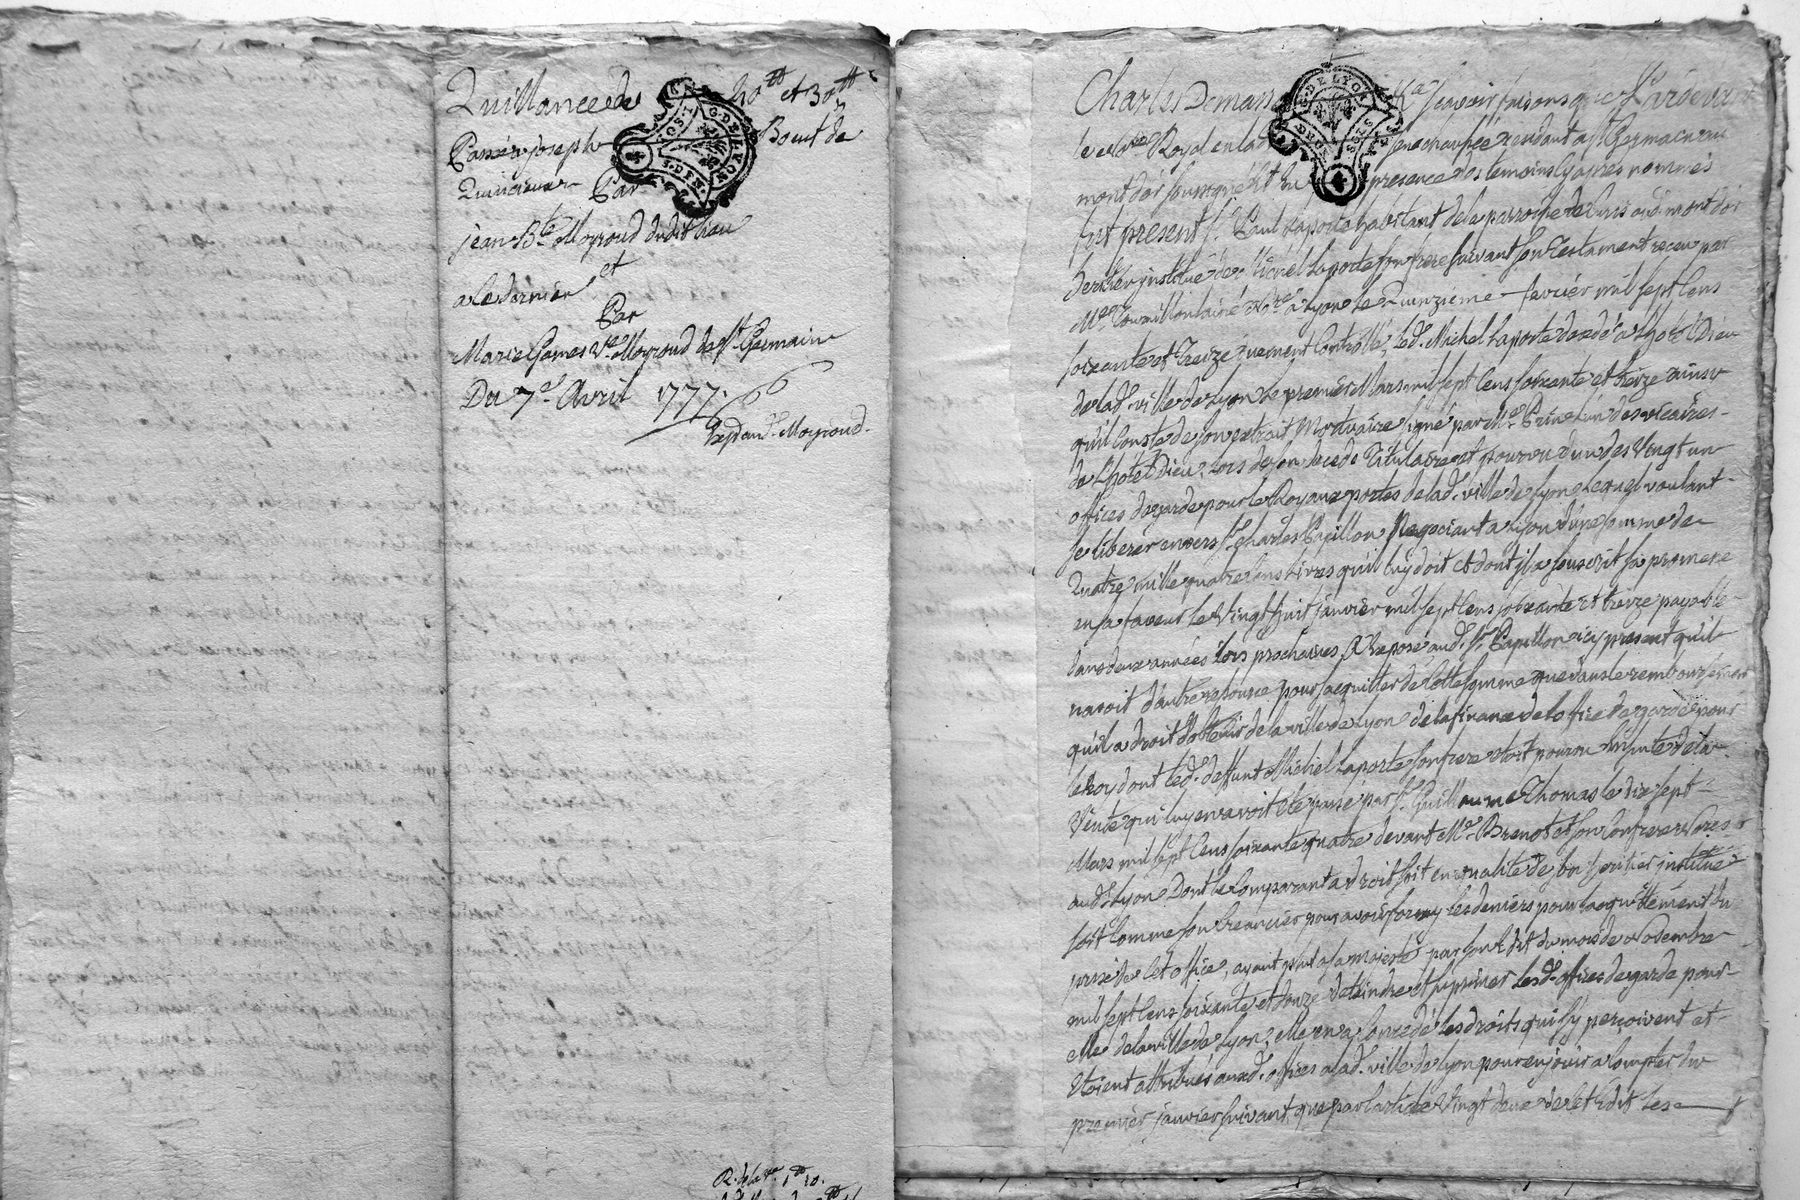 Quittance de 40 ᵗᵗ et 30 ᵗᵗ
Passée a joseph Bout de
Quincieux Par
jean Bte Moyroud dudit lieu
et
a ce dernier
Par
Marie Gomes Ve Moyroud de St Germain
Du 7e Avril 1777.
Expd au Sr Moyroud.
R. de la
S. DE LYON
Charles Demars scavoir faisons que Pardevant
le Nore Royal en la Senechaussée residant a St Germain au
mont d'or soussigné Et en presence des temoins cy apres nommés
fut present Sr. Paul Laporte habitant de la parroisse de Curis au mont d'or
heritier institué de Michel Laporte son frere suivant son Testament recu par
Me. ainé Nore a Lyon le Quinzieme fevrier mil sept cens
soixante et treize duement Controllé, led. Michel Laporte decedé a L'hotel Dieu
de lad. ville de Lyon le premier Mars mil sept cens soixante et treize ainsy
qu'il Conste de son extrait Mortuaire signé par Mr. Prin L'un des vicaires
de L'hotel Dieu, lors de son decede Titulaire et pourvu d'un des Vingt un
offices de garde pour le Roy aux portes de lad. ville de Lyon Lequel voulant
se liberer envers Sr. Charles Papillon Negociant a Lyon d'une somme de
Quatre mille quatre cens Livres qu'il luy doit et dont il a souscrit sa promesse
en sa faveur le Vingt huit janvier mil sept cens soixante et treize payable
dans deux années lors prochaines, A Exposé aud. Sr. Papillon icy present qu'il
n'avoit d'autre resource pour s'acquitter de cette somme que dans le remboursement
qu'il a droit d'obtenir de la ville de Lyon de la finance de l'office de garde pour
le Roy dont led. deffunt Michel Laporte son frere etoit pourvu En suite de la
Vente qui luy en avoit eté passé par Sr. Guillaume Thomas le dix sept
Mars mil sept cens soixante quatre devant Me. Brenot et son Confrere Nores
aud. Lyon Dont le Comparant a droit soit en qualité de son heritier institué
soit Comme son Creancier pour avoir fourny les deniers pour l'acquittement du
prix de cet office, ayant plut a sa majesté par son Edit du mois de Novembre
mil sept cens soixante et douze d'eteindre et suprimer lesd. offices de garde pour
elle de la ville de Lyon, elle en a Concedé les droits qui s'y perçoivent et
etoient attribués auxd. offices a lad. ville de Lyon pour en jouir a Compter du
premier janvier suivant, que par l'article Vingt deux de cet Edit les